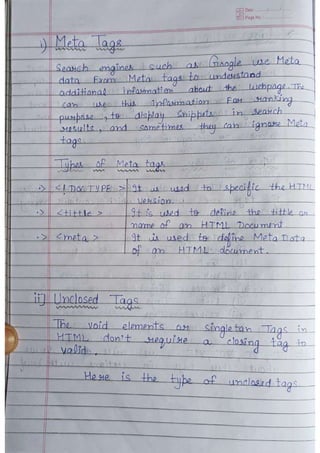 Date
Page No.
i) Meta Tags
Search engines such as Google use Meta
data From Meta tags to understand
additional Information about the webpage. The
can use this information For ranking
purpose, to display Snippets in search
results, and sometimes they can ignore Meta
tags.
Types of Meta tags
·> <! DOCTYPE > It is used to specific the HTML
version.
·> <tittle > It is used to define the tittle or
name of an HTML Document
·> <meta > It is used to define Meta Data
of an HTML document.
ii) Unclosed Tags
The void elements or singletan Tags in
HTML don't require a closing tag to
valid.
Here is the type of unclosed tags